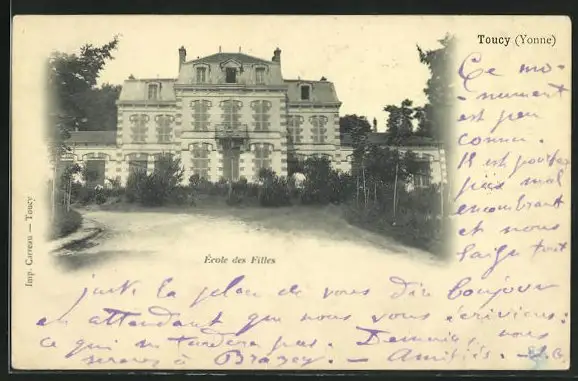 Toucy (Yonne)
Ce mo-
nument
est peu
connu.
Il est pourtant
pas mal
encombrant
et nous
laisse tout
École des Filles
Imp. Carreau — Toucy
juste la place de vous dire bonjour
en attendant que nous vous écrivions :
ce qui ne tardera pas. Demain, nous
serons à Brazey. — Amitiés. —